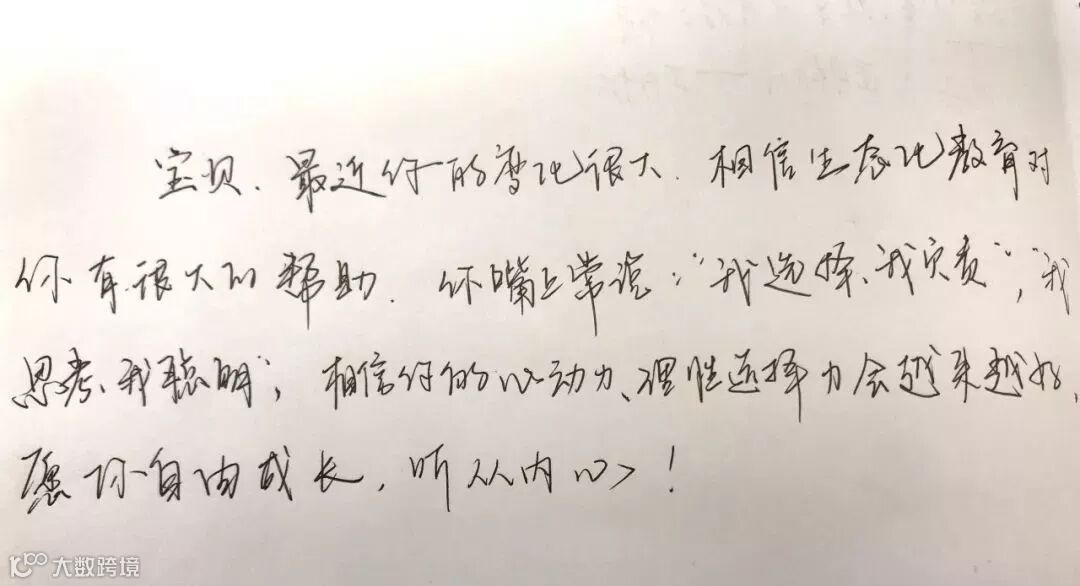 宝贝、最近你的变化很大.相信生态化教育对
你有很大的帮助.你嘴上常说:"我选择、我负责",“我
思考、我聪明”;相信你的心动力、理性选择力会越来越好,
愿你自由成长,听从内心!
大数跨境